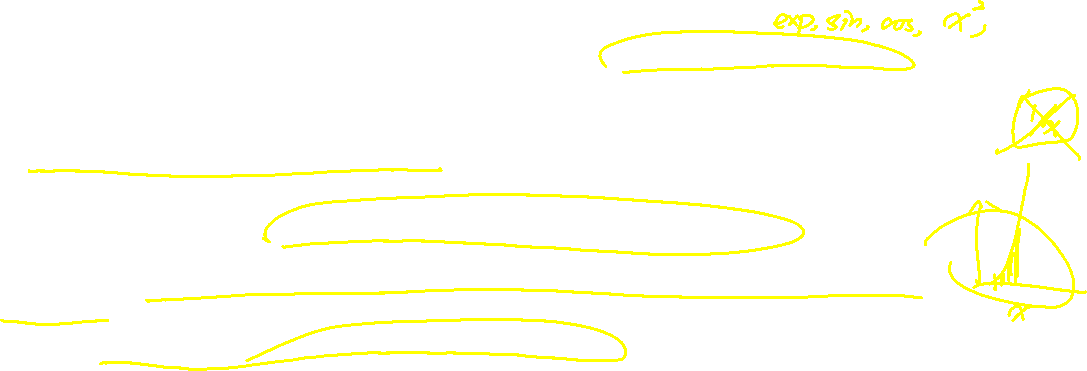 exp, sin, cos, x²,
x